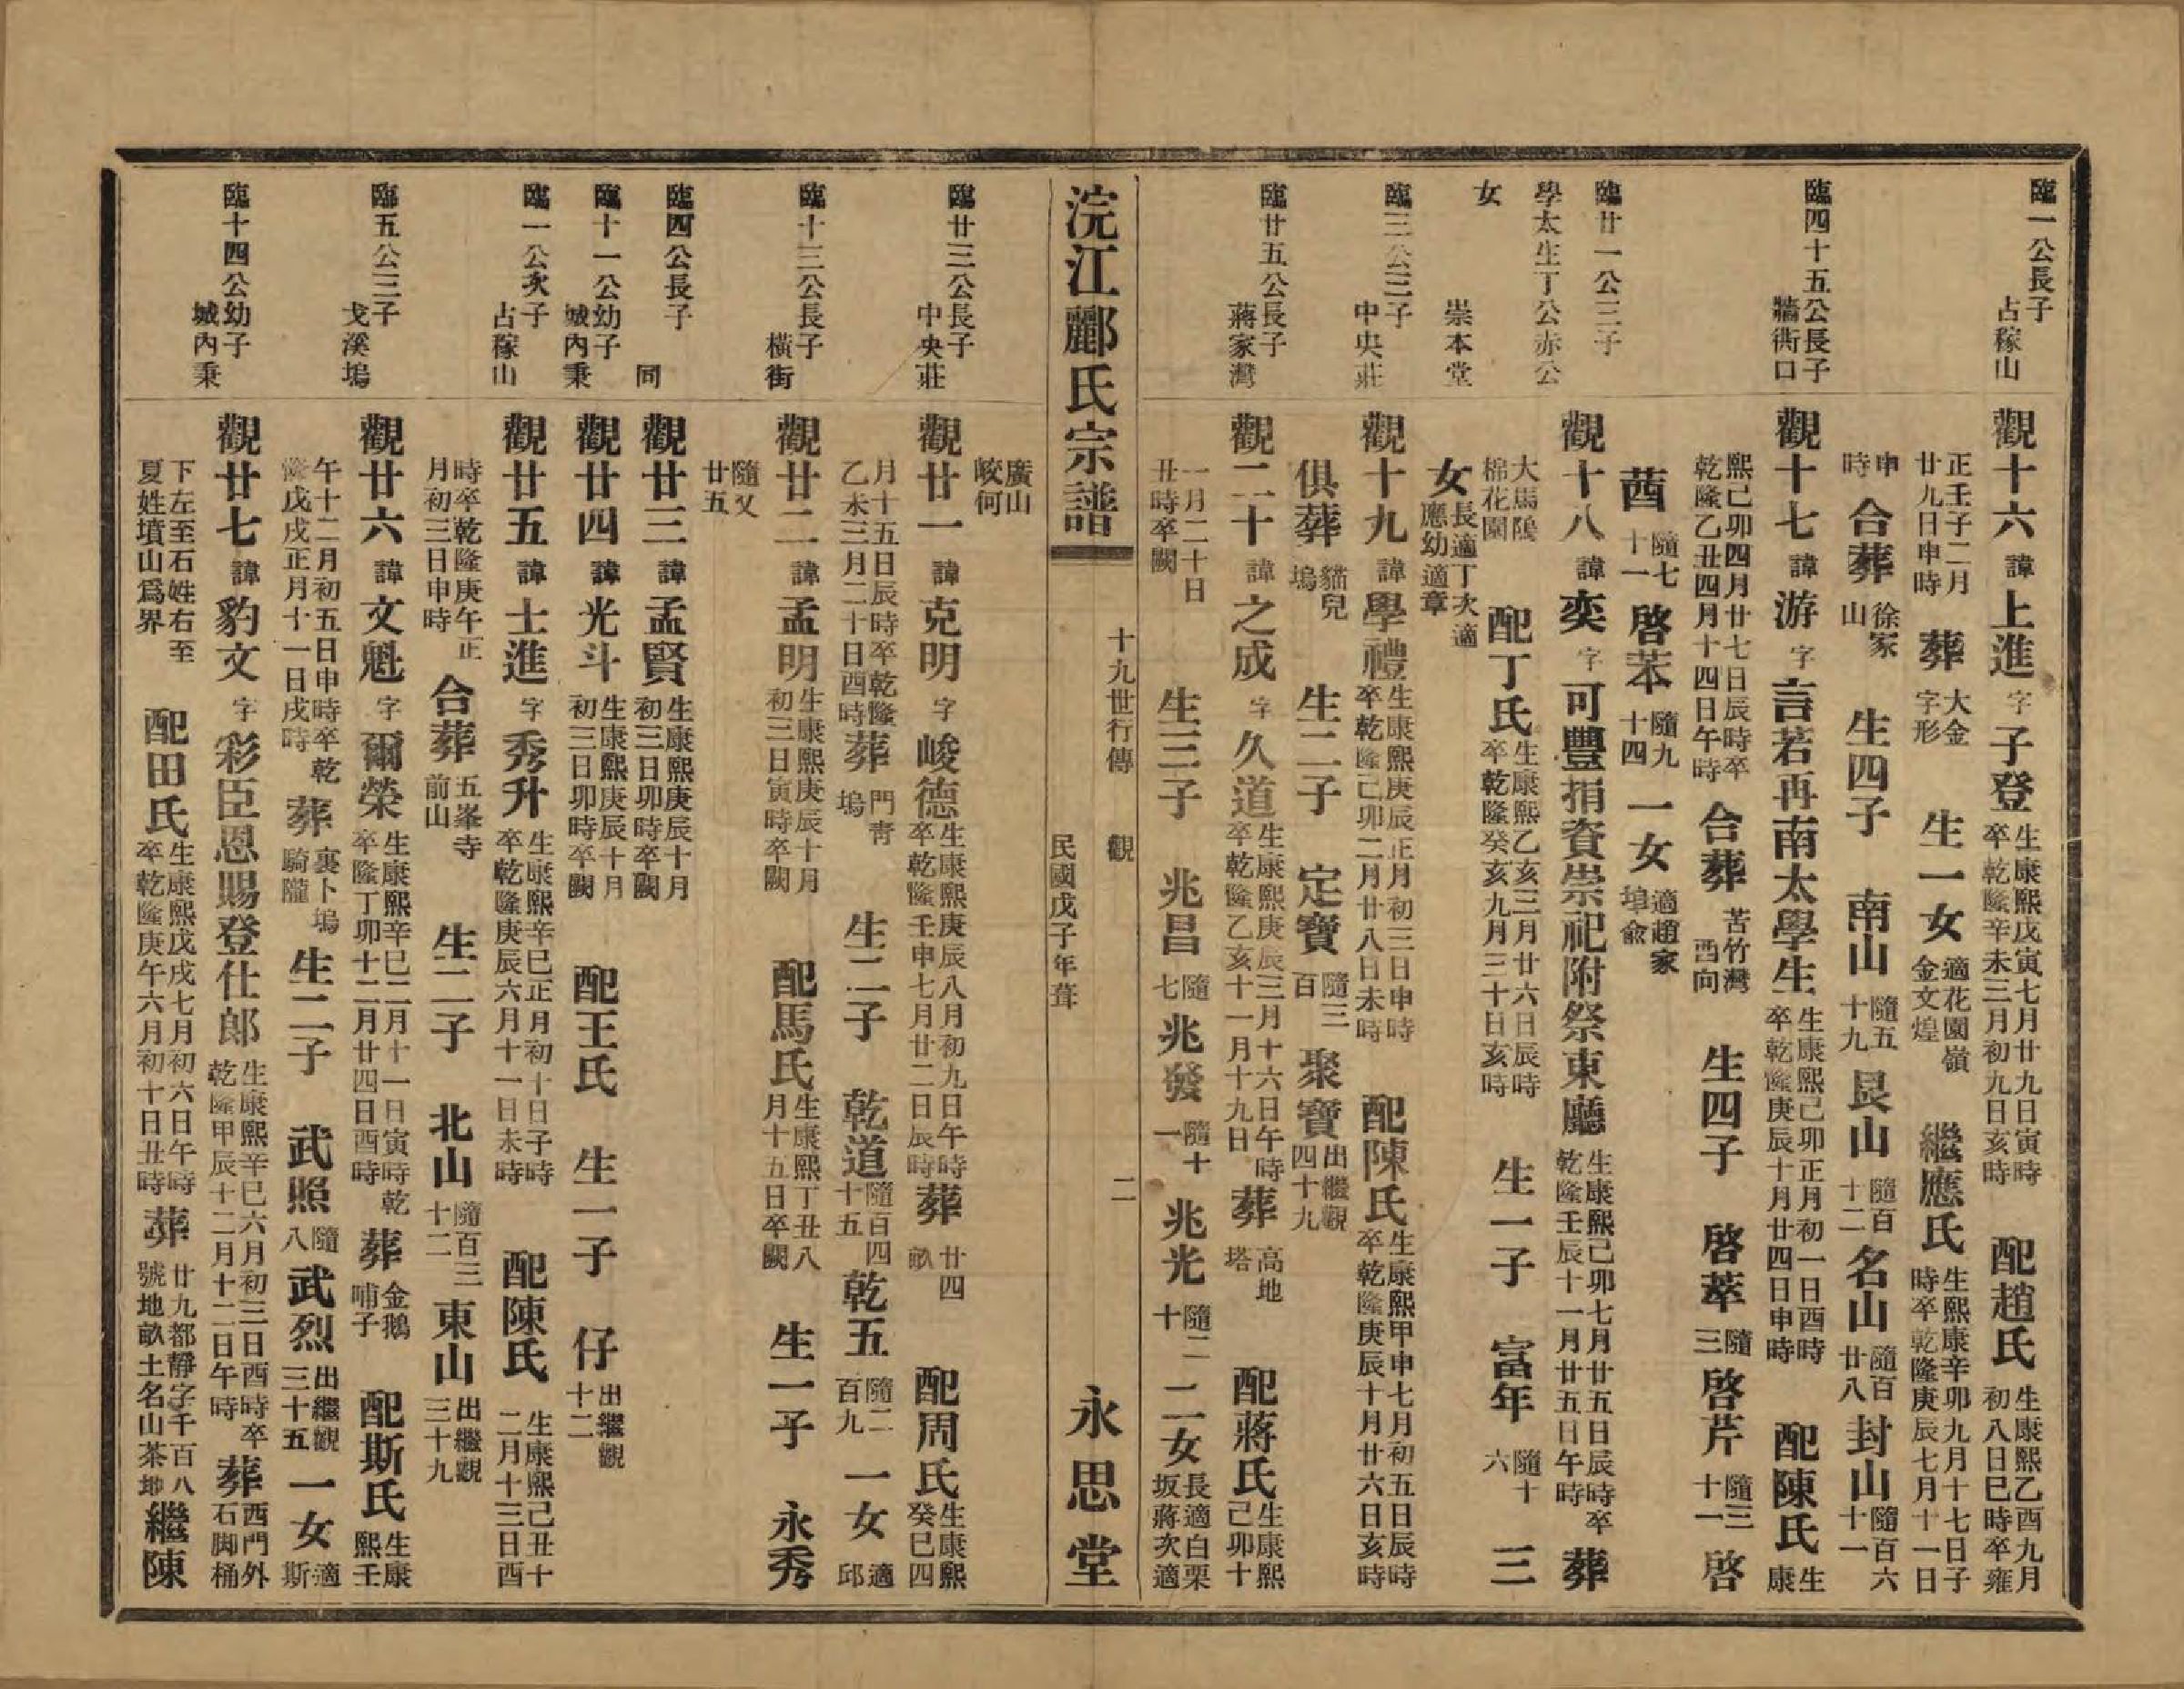 臨一公長子占稼山
觀十六諱上進字子登生康熙戊寅七月廿九日寅時卒乾隆辛未三月初九日亥時配趙氏生康熙乙酉九月初八日巳時卒雍
正壬子二月廿九日申時葬大金字形生一女適花園嶺金文煌繼應氏生熙康辛卯九月十七日子時卒乾隆庚辰七月十一日
申時合葬徐家山生四子南山隨五十九艮山隨百十二名山隨百廿八封山隨百六十一
臨四十五公長子牆衖口
觀十七諱游字言若再南太學生生康熙己卯正月初一日酉時卒乾隆庚辰十月廿四日申時配陳氏生康
熙己卯四月廿七日辰時卒乾隆乙丑四月十四日午時合葬苦竹灣西向生四子啓萃隨三啓芹隨三十一啓
茜隨七十一啓苯隨九十四一女適趙家埠俞
臨廿一公三子
學太生丁公赤公
女崇本堂
觀十八諱奕字可豐捐資崇祀附祭東廳生康熙己卯七月廿五日辰時卒乾隆壬辰十一月廿五日午時葬
大馬隖棉花園配丁氏生康熙乙亥三月廿六日辰時卒乾隆癸亥九月三十日亥時生一子富年隨十六三
女長適丁次適應幼適章
臨三公三子中央莊
觀十九諱學禮生康熙庚辰正月初三日申時卒乾隆己卯二月廿八日未時配陳氏生康熙甲申七月初五日辰時卒乾隆庚辰十月廿六日亥時
俱葬貓兒塢生二子定寶隨三百聚寶出繼觀四十九
臨廿五公長子蔣家灣
觀二十諱之成字久道生康熙庚辰三月十六日午時卒乾隆乙亥十一月十九日葬高地塔配蔣氏生康熙己卯十
一月二十日丑時卒闕生三子兆昌隨七兆發隨十一兆光隨二十二女長適白栗坂蔣次適
浣江酈氏宗譜
十九世行傳 觀 二
民國戊子年葺
永思堂
廣山峧何
臨廿三公長子中央莊
觀廿一諱克明字峻德生康熙庚辰八月初九日午時卒乾隆壬申七月廿二日辰時葬廿四畝配周氏生康熙癸巳四
月十五日辰時卒乾隆乙未三月二十日酉時葬門青塢生二子乾道隨百四十五乾五隨二百九一女適邱
臨十三公長子橫街
觀廿二諱孟明生康熙庚辰十月初三日寅時卒闕配馬氏生康熙丁丑八月十五日卒闕生一子永秀
隨又廿五
臨四公長子同
觀廿三諱孟賢生康熙庚辰十月初三日卯時卒闕
臨十一公幼子城內秉
觀廿四諱光斗生康熙庚辰十月初三日卯時卒闕配王氏生一子仔出繼觀十二
臨一公次子占稼山
觀廿五諱士進字秀升生康熙辛巳正月初十日子時卒乾隆庚辰六月十一日未時配陳氏生康熙己丑十二月十三日酉
時卒乾隆庚午正月初三日申時合葬五峯寺前山生二子北山隨百三十二東山出繼觀三十九
臨五公三子戈溪塢
觀廿六諱文魁字爾榮生康熙辛巳二月十一日寅時乾卒隆丁卯十二月廿四日酉時葬金鵝哺子配斯氏生康熙壬
午十二月初五日申時卒乾隆戊戌正月十一日戌時葬裏卜塢騎隴生二子武照隨八武烈出繼觀三十五一女適斯
臨十四公幼子城內秉
觀廿七諱豹文字彩臣恩賜登仕郎生康熙辛巳六月初三日酉時卒乾隆甲辰十二月十二日午時葬西門外石脚桶
下左至石姓右至夏姓墳山爲界配田氏生康熙戊戌七月初六日午時卒乾隆庚午六月初十日丑時葬廿九都靜字千百八號地畝土名山茶坳繼陳